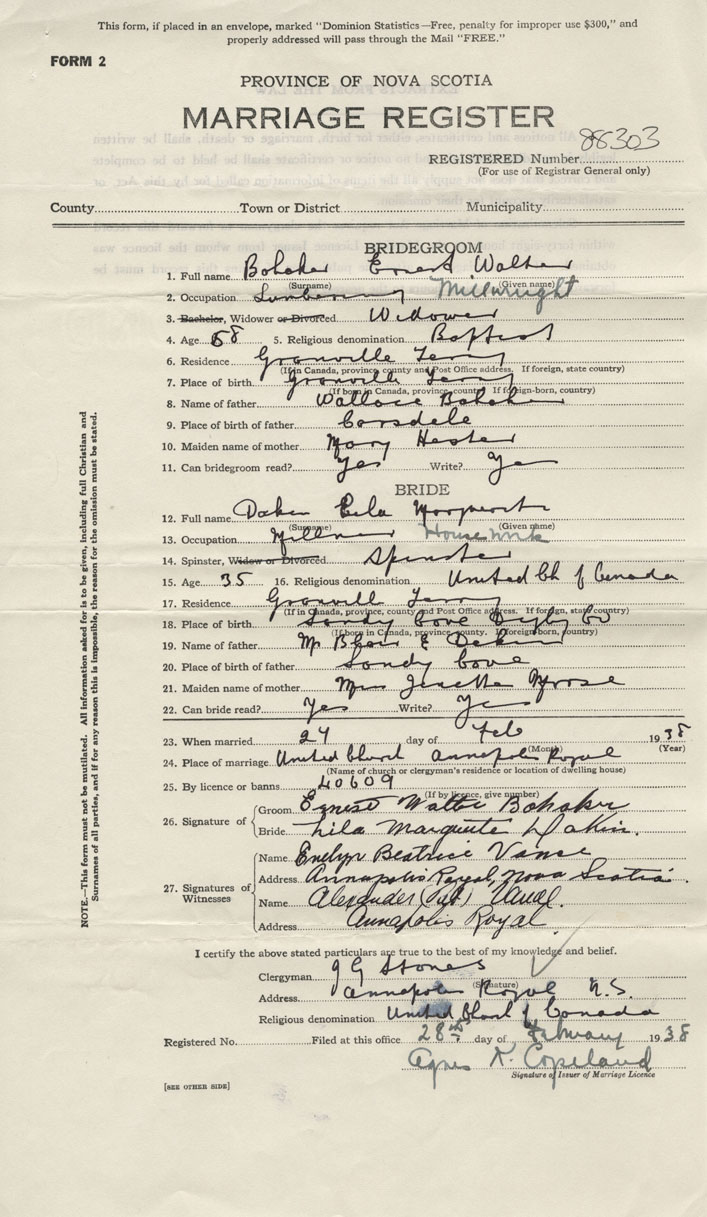 This form, if placed in an envelope, marked "Dominion Statistics—Free, penalty for improper use $300," and
properly addressed will pass through the Mail "FREE."
FORM 2
PROVINCE OF NOVA SCOTIA
MARRIAGE REGISTER
88303
REGISTERED Number
(For use of Registrar General only)
County Town or District Municipality
BRIDEGROOM
1. Full name Bohaker Ernest Walter
(Surname) (Given name)
2. Occupation Lumbering Millwright
3. Bachelor, Widower or Divorced Widower
4. Age 58 5. Religious denomination Baptist
6. Residence Granville Ferry
(If in Canada, province, county and Post Office address. If foreign, state country)
7. Place of birth Granville Ferry
(If born in Canada, province, county. If foreign-born, country)
8. Name of father Wallace Bohaker
9. Place of birth of father Karsdale
10. Maiden name of mother Mary Hester
11. Can bridegroom read? Yes Write? Yes
BRIDE
12. Full name Dakin Lila Marguerite
(Surname) (Given name)
13. Occupation Milliner Housework
14. Spinster, Widow or Divorced Spinster
15. Age 35 16. Religious denomination United Ch of Canada
17. Residence Granville Ferry
(If in Canada, province, county and Post Office address. If foreign, state country)
18. Place of birth Sandy Cove Digby Co
(If born in Canada, province county. If foreign-born, country)
19. Name of father Mr Blair E Dakin
20. Place of birth of father Sandy Cove
21. Maiden name of mother Miss Morse
22. Can bride read? Yes Write? Yes
23. When married 24 day of Feb 1938
(Month) (Year)
24. Place of marriage United Church Annapolis Royal
(Name of church or clergyman's residence or location of dwelling house)
25. By licence or banns 40609
(If by licence, give number)
26. Signature of
Groom Ernest Walter Bohaker
Bride Lila Marguerite Dakin.
27. Signatures of Witnesses
Name Evelyn Beatrice Vance
Address Annapolis Royal, Nova Scotia.
Name Alexander
Address Annapolis Royal
I certify the above stated particulars are true to the best of my knowledge and belief.
Clergyman J G Stones
(Signature)
Address Annapolis Royal N.S.
Religious denomination United Church of Canada
Registered No. Filed at this office 28th day of February 1938
Agnes K. Copeland
Signature of Issuer of Marriage Licence
[SEE OTHER SIDE]
NOTE—This form must not be mutilated. All information asked for is to be given, including full Christian and
Surnames of all parties, and if for any reason this is impossible, the reason for the omission must be stated.